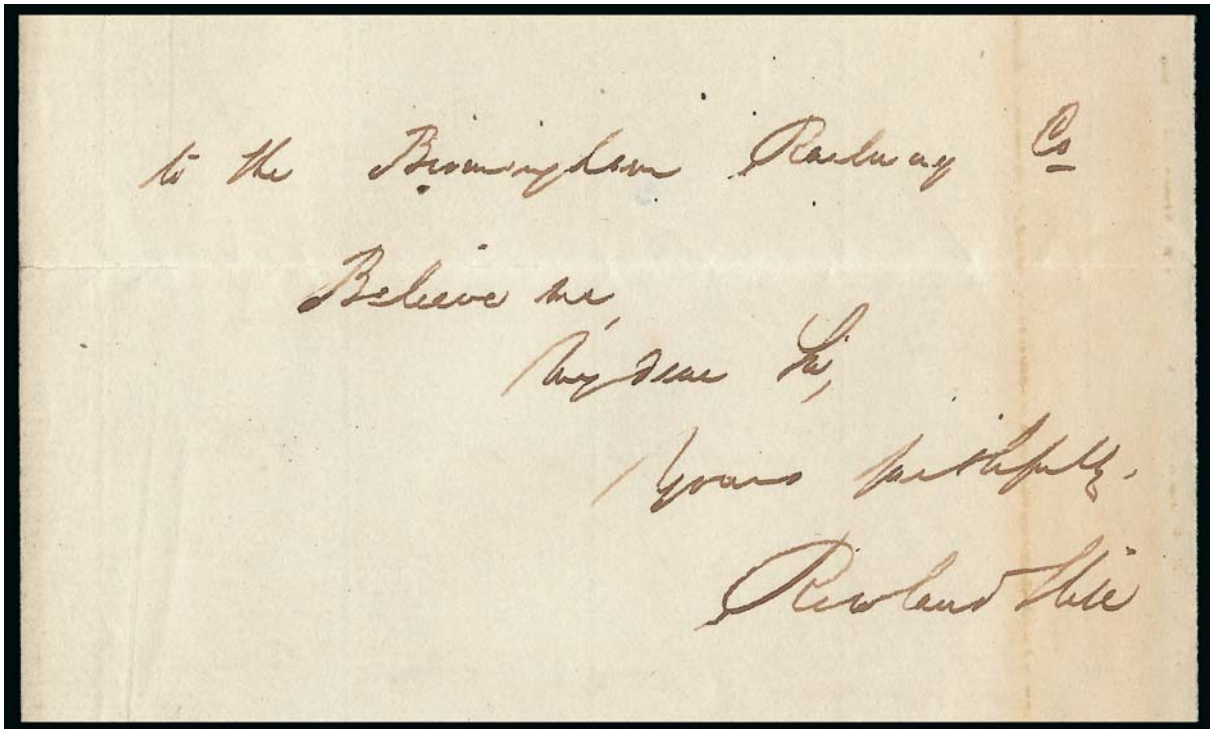 to the Birmingham Railway Co
Believe me,
My dear Sir,
Yours faithfully.
Rowland Hill